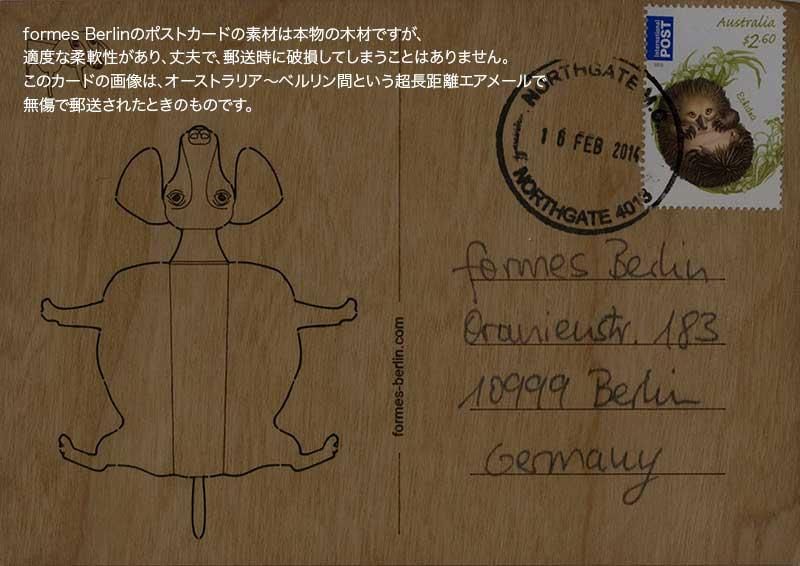 formes Berlinのポストカードの素材は本物の木材ですが、
適度な柔軟性があり、丈夫で、郵送時に破損してしまうことはありません。
このカードの画像は、オーストラリア〜ベルリン間という超長距離エアメールで
無傷で郵送されたときのものです。
Australia
$2.60
International
POST
Echidna
NORTHGATE M.C
16 FEB 2014
NORTHGATE 4013
formes Berlin
Oranienstr. 183
10999 Berlin
Germany
formes-berlin.com